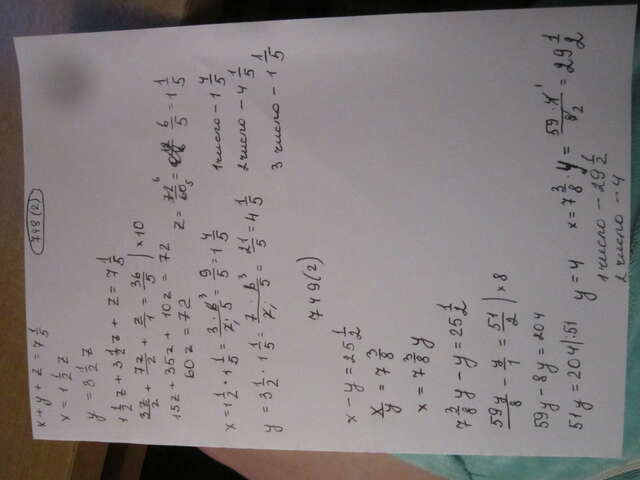 748(2)
x + y + z = 7 1/5
x = 1 1/2 z
y = 3 1/2 z
1 1/2 z + 3 1/2 z + z = 7 1/5
3z/2 + 7z/2 + z/1 = 36/5 | × 10
15z + 35z + 10z = 72
60z = 72
z = 72/60 = 6/5 = 1 1/5
x = 1 1/2 · 1 1/5 = 3 · 6/2 · 5 = 9/5 = 1 4/5
y = 3 1/2 · 1 1/5 = 7 · 6/2 · 5 = 21/5 = 4 1/5
1 число – 1 4/5
2 число – 4 1/5
3 число – 1 1/5
749(2)
x – y = 25 1/2
x/y = 7 3/8
x = 7 3/8 y
7 3/8 y – y = 25 1/2
59y/8 – y/1 = 51/2 | × 8
59y – 8y = 204
51y = 204 |:51
y = 4
x = 7 3/8 · y = 59 · 4/8 = 29 1/2
1 число – 29 1/2
2 число – 4